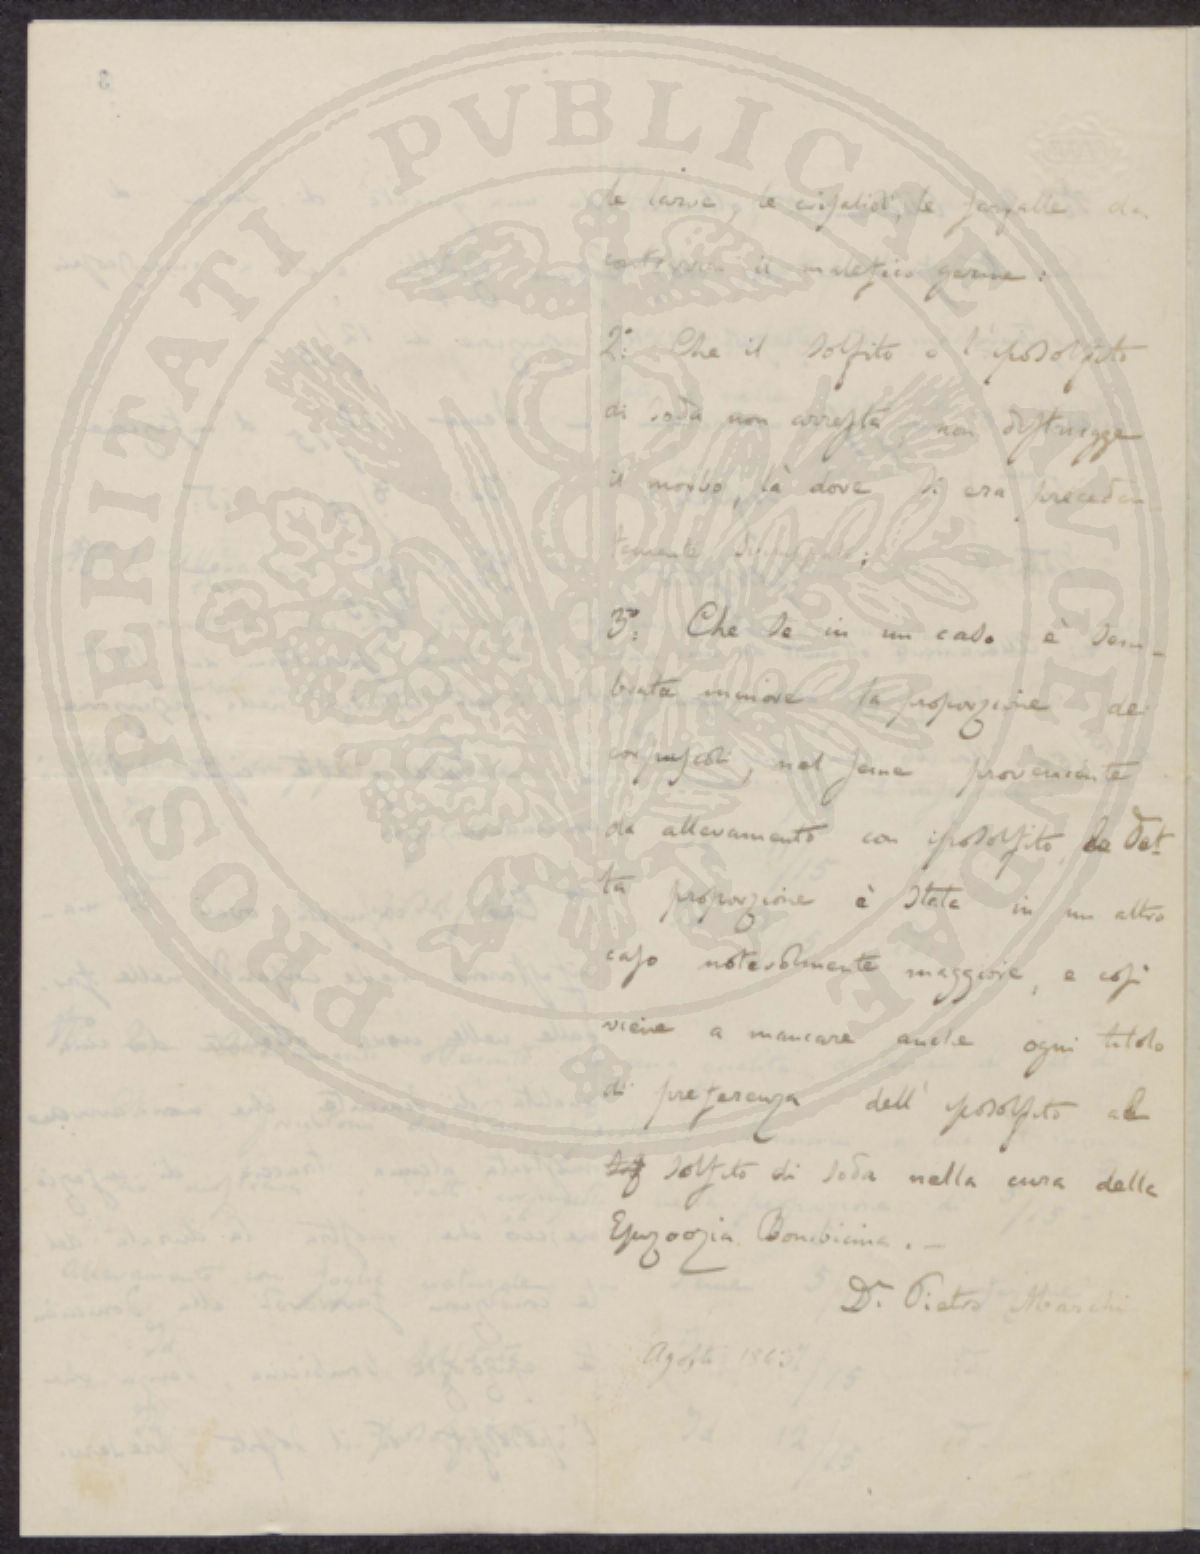 PROSPERITATI PVBLICAE AVGENDAE
le larve, le crisalidi, le farfalle da
contrarre il malefico germe:
2º: Che il solfito e l'iposolfito
di soda non arresta, non distrugge
il morbo, là dove si era preceden
temente sviluppato;
3º: Che se in un caso è sem-
brata minore la proporzione dei
corpuscoli, nel seme proveniente
da allevamento con iposolfito, la det-
ta proporzione è stata in un altro
caso notevolmente maggiore, e così
viene a mancare anche ogni titolo
di preferenza dell' iposolfito al
solfito di soda nella cura della
Epizoozia Bombicina. -
Dr. Pietro Marchi
Agosto 1863